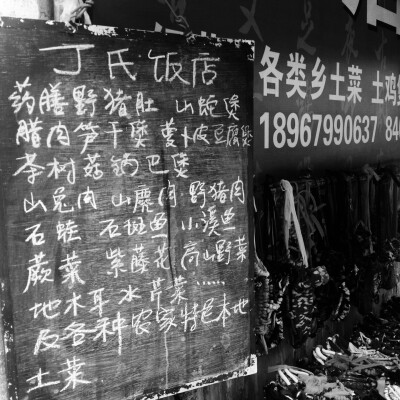 丁氏饭店
药膳野猪肚 山鸵煲
腊肉笋干煲 萝卜皮豆腐煲
茶树菇锅巴煲
山兔肉 山麂肉 野猪肉
石蛙 石斑鱼 小溪鱼
蕨菜 紫藤花 高山野菜
地木耳 水芹菜......
及各种农家特色本地
土菜
各类乡土菜 土鸡煲
18967990637 84